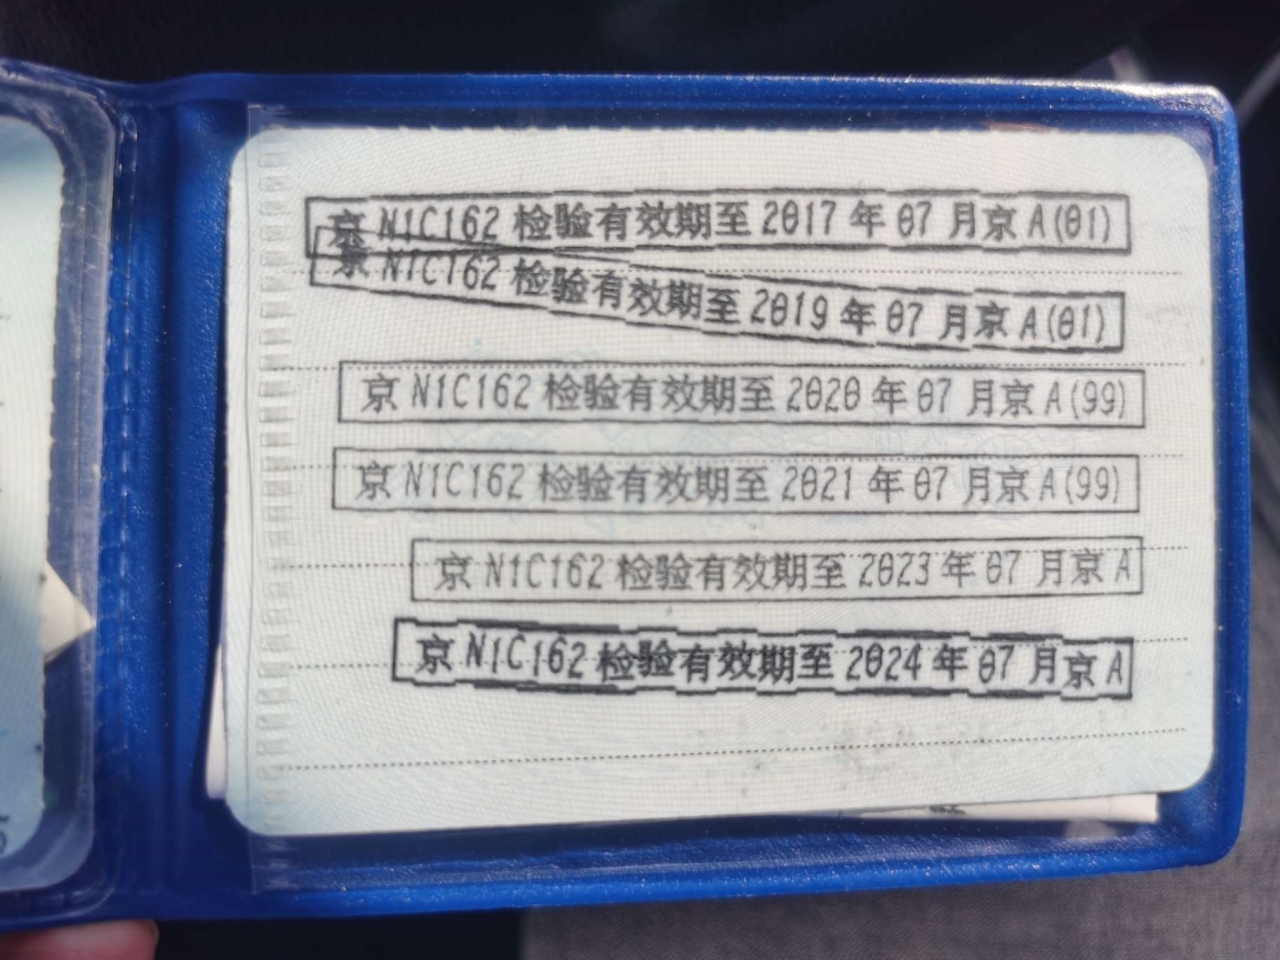 京 N1C162 检验有效期至 2017 年 07 月京 A(01)
京 N1C162 检验有效期至 2019 年 07 月京 A(01)
京 N1C162 检验有效期至 2020 年 07 月京 A(99)
京 N1C162 检验有效期至 2021 年 07 月京 A(99)
京 N1C162 检验有效期至 2023 年 07 月京 A
京 N1C162 检验有效期至 2024 年 07 月京 A